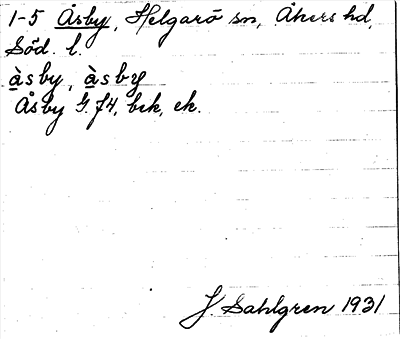 1-5 Åsby, Helgarö sn, Åkers hd,
Söd. l.
àsby, àsby
Åsby G. f4, bek, ek.
J. Sahlgren 1931